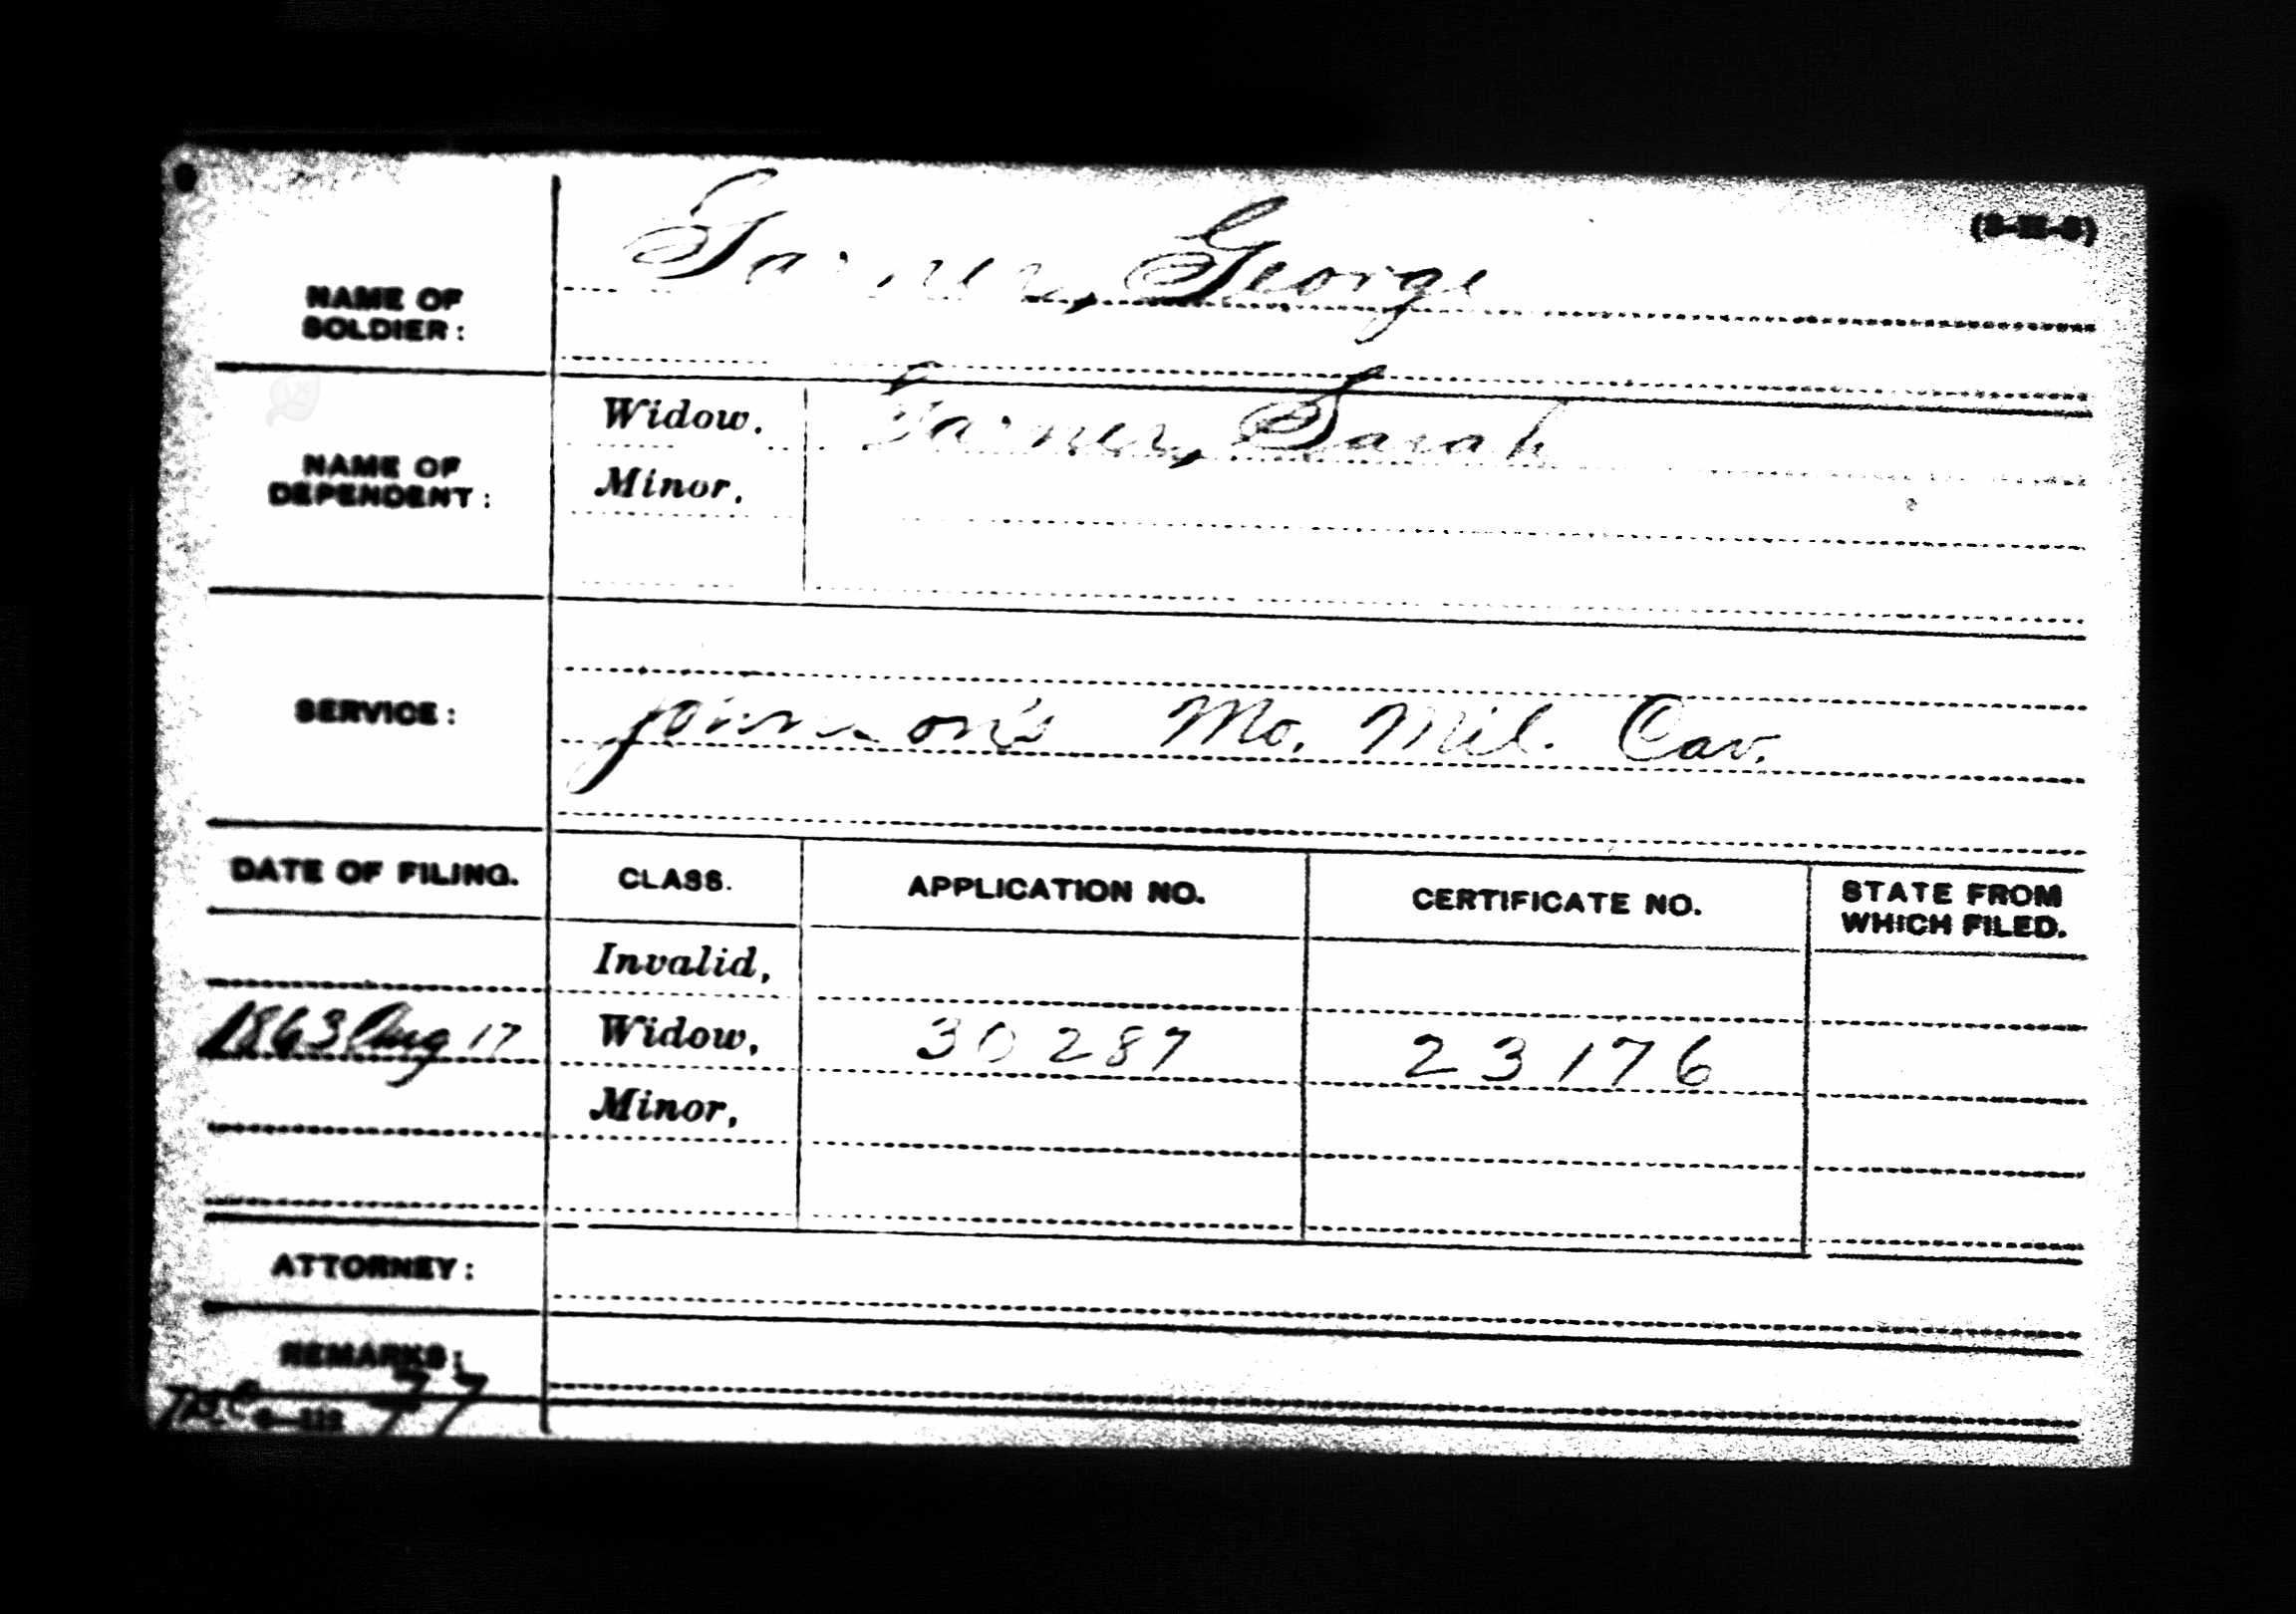 George
NAME OF
SOLDIER:
NAME OF
DEPENDENT:
Widow. Sarah
Minor.
SERVICE:
Johnson's Mo. Mil. Cav.
DATE OF FILING. CLASS. APPLICATION NO. CERTIFICATE NO. STATE FROM
WHICH FILED.
Invalid,
1863 Aug 17 Widow, 30287 23176
Minor,
ATTORNEY:
REMARKS: